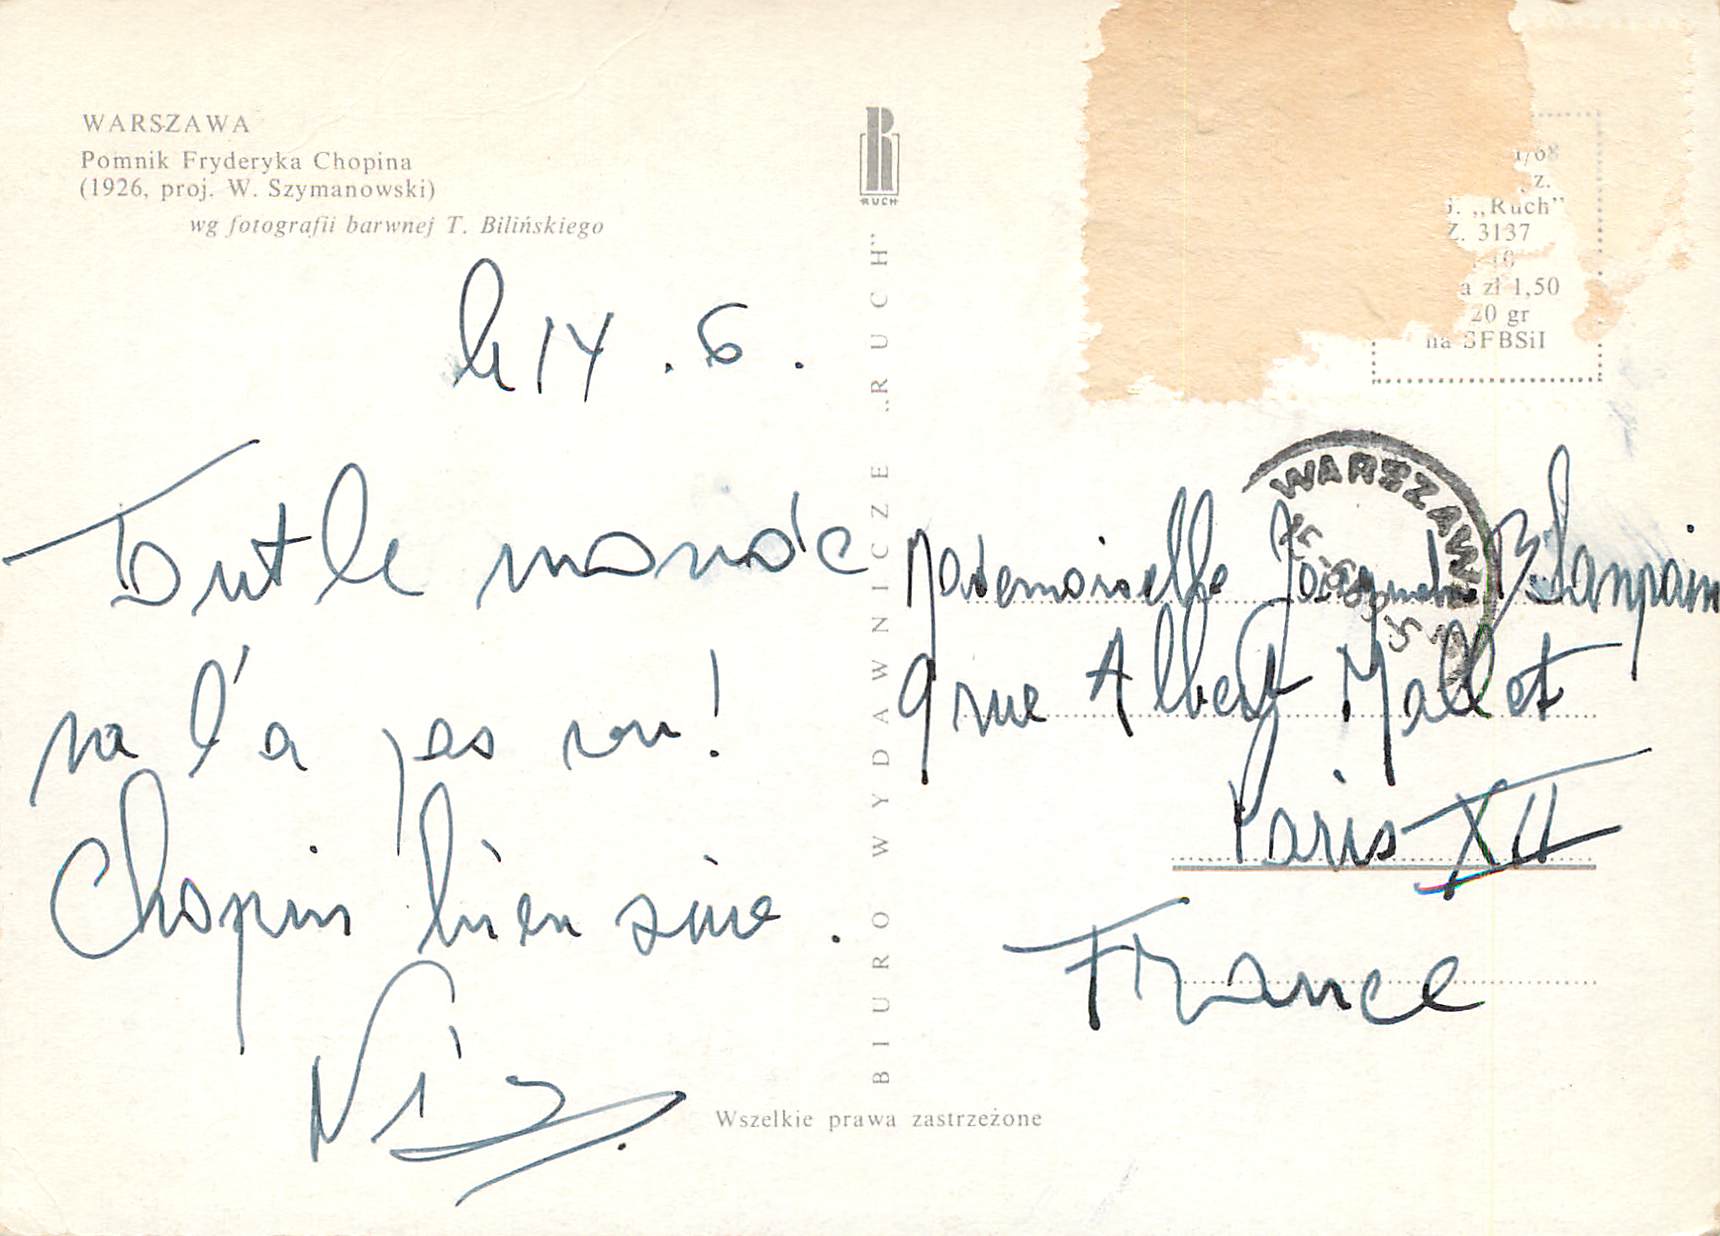 WARSZAWA
Pomnik Fryderyka Chopina
(1926, proj. W. Szymanowski)
wg fotografii barwnej T. Bilińskiego
le 14.6.
Tout le monde
ne l'a pas vu!
Chopin bien sûre.
RUCH
BIURO WYDAWNICZE „RUCH”
Wszelkie prawa zastrzeżone
1/68
z.
„Ruch”
Z. 3137
a zł 1,50
20 gr
na SFBSiI
WARSZAWA
Mademoiselle Jacqueline Blanpain
9 rue Albert Mallet
Paris XII
France